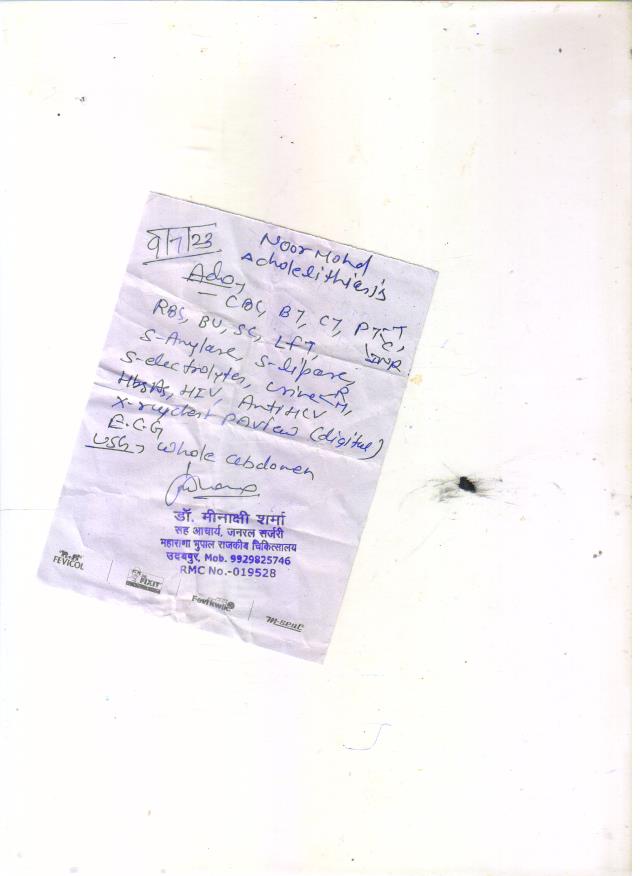 9/7/23
Noor Mohd
Cholelithiasis
Adv,
CBC, BT, CT, PT, INR
RBS, BU, SC, LFT,
S-Amylase, S-lipase,
S-electrolytes, Urine R, M,
HbsAg, HIV, Anti HCV
X-ray chest PA view (digital)
E.C.G
USG, whole abdomen
डॉ. मीनाक्षी शर्मा
सह आचार्य, जनरल सर्जरी
महाराणा भूपाल राजकीय चिकित्सालय
उदयपुर, Mob. 9929825746
RMC No.-019528
FEVICOL
FIXIT
Fevikwik
M-SEAL